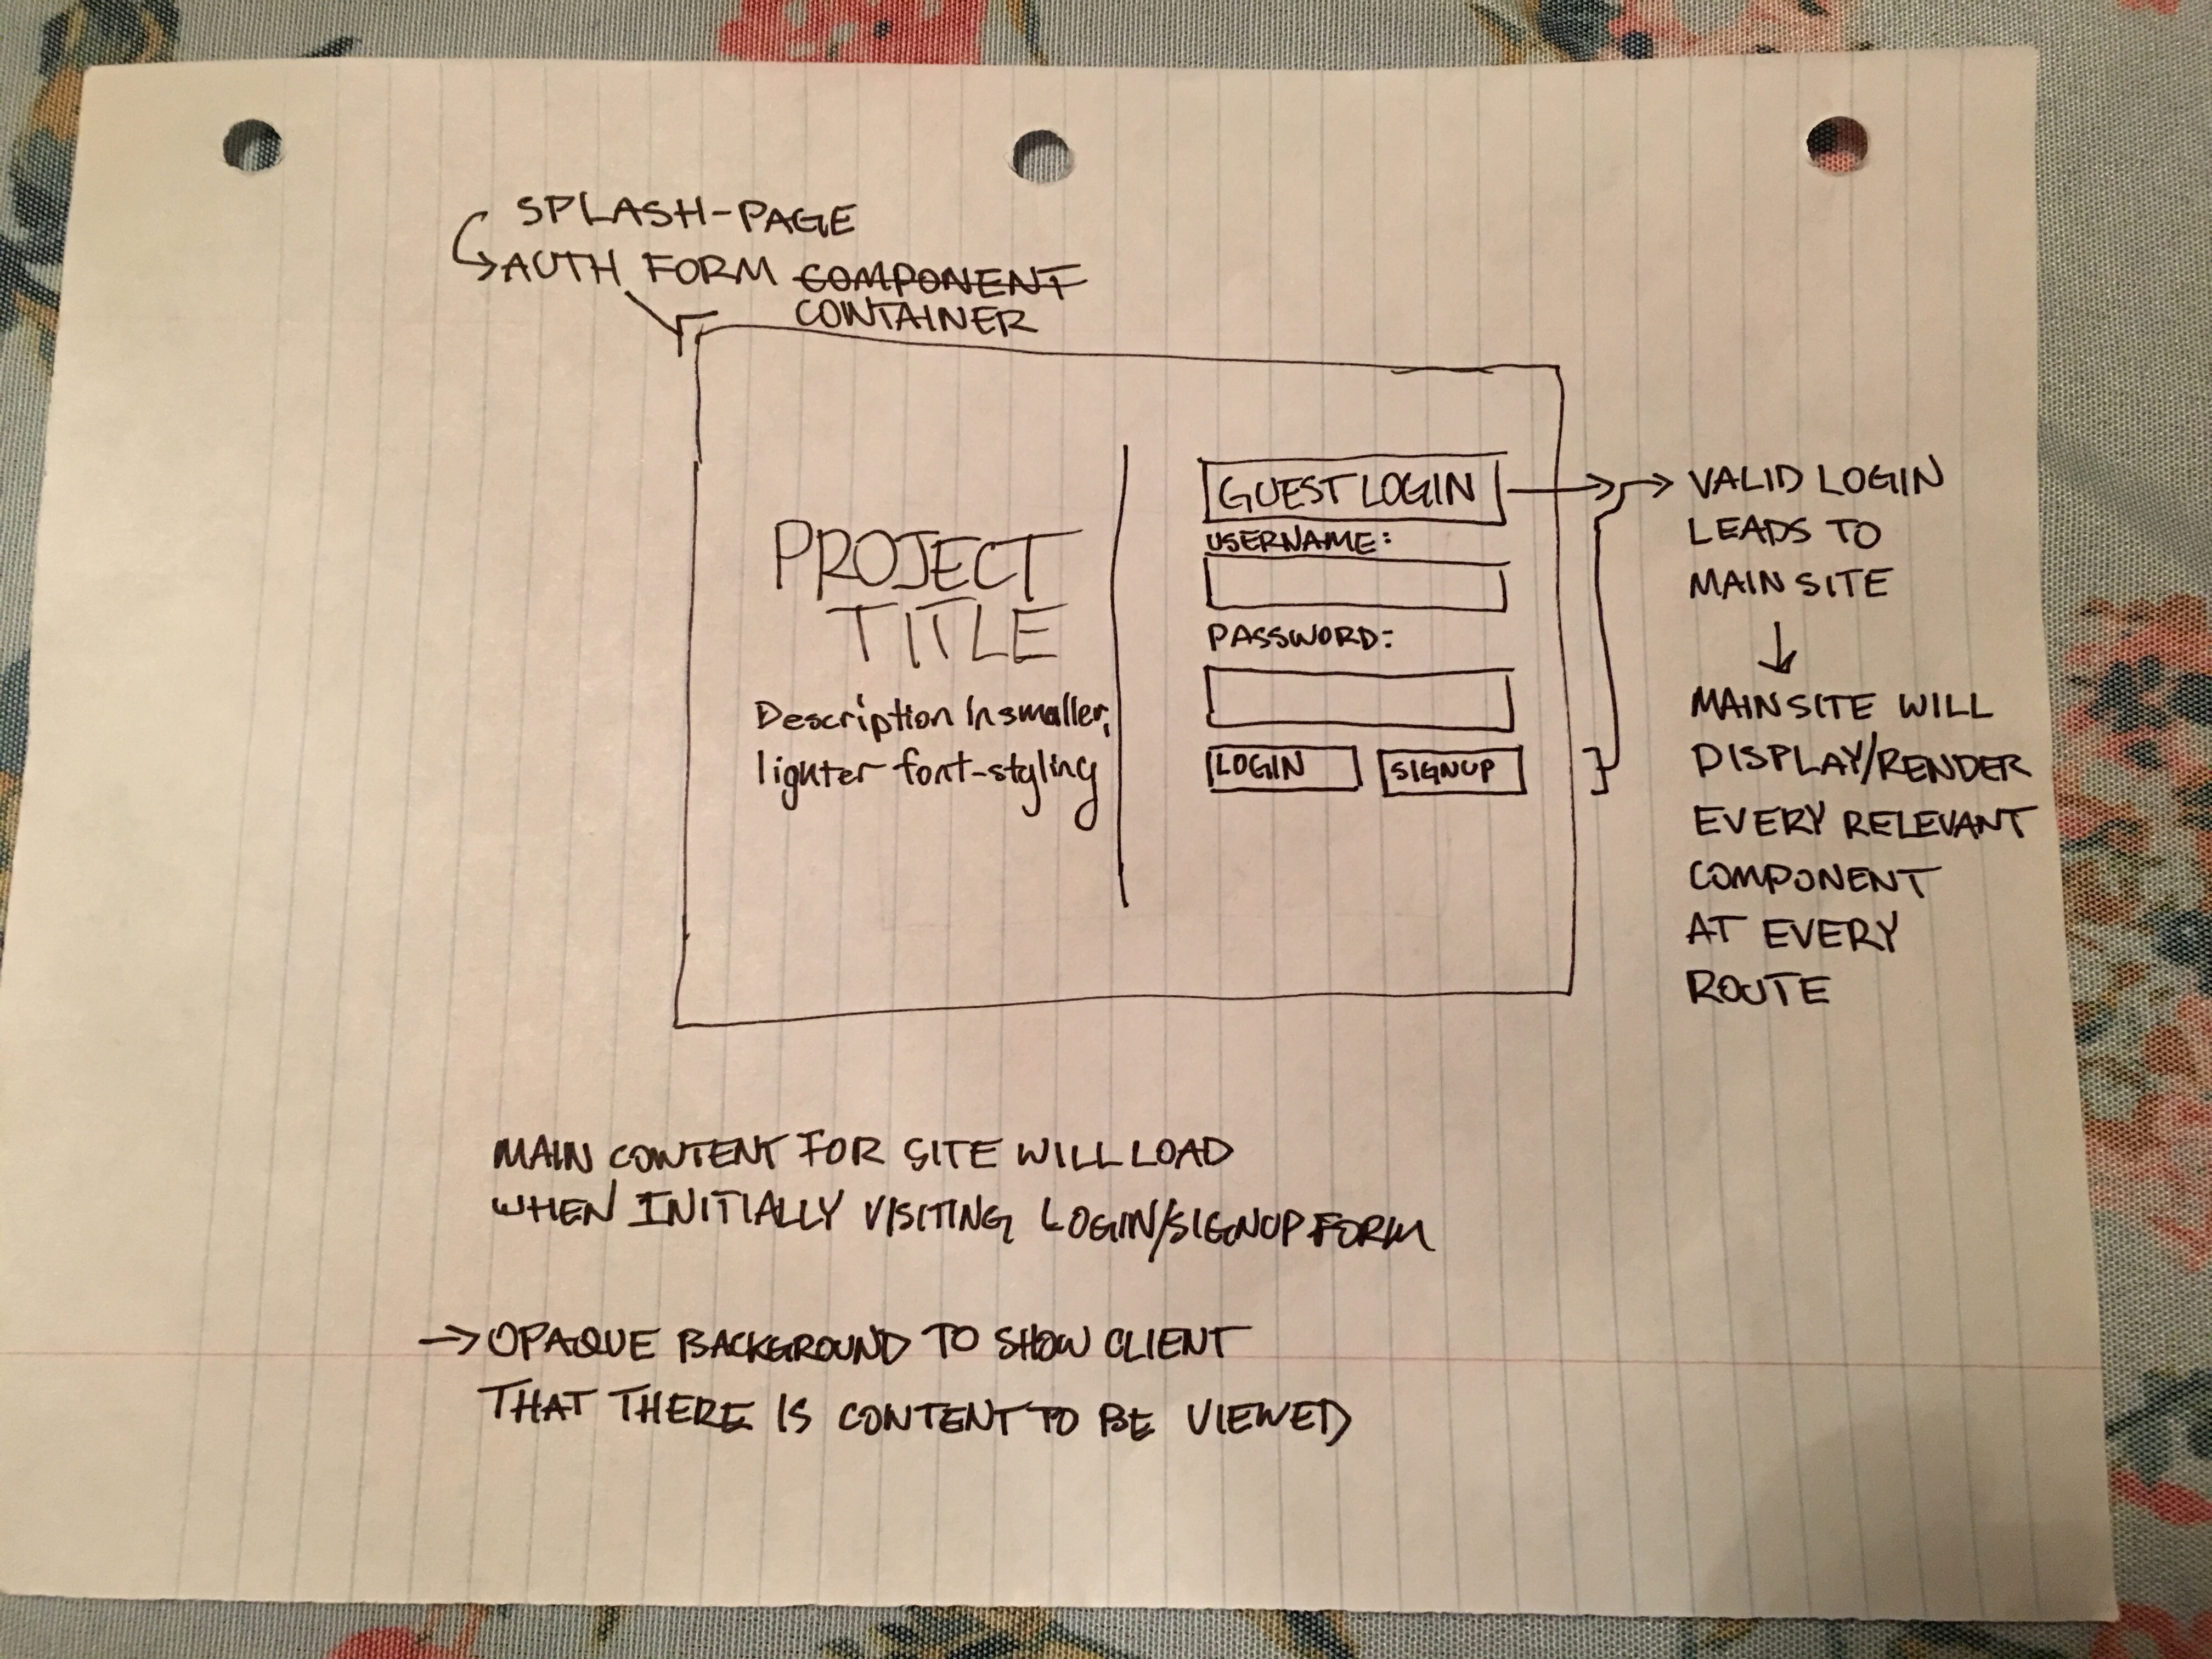 SPLASH-PAGE
AUTH FORM COMPONENT
CONTAINER
PROJECT
TITLE
Description in smaller,
lighter font-styling
GUEST LOGIN
USERNAME:
PASSWORD:
LOGIN
SIGNUP
VALID LOGIN
LEADS TO
MAIN SITE
MAINSITE WILL
DISPLAY/RENDER
EVERY RELEVANT
COMPONENT
AT EVERY
ROUTE
MAIN CONTENT FOR SITE WILL LOAD
WHEN INITIALLY VISITING LOGIN/SIGNUP FORM
→ OPAQUE BACKGROUND TO SHOW CLIENT
THAT THERE IS CONTENT TO BE VIEWED